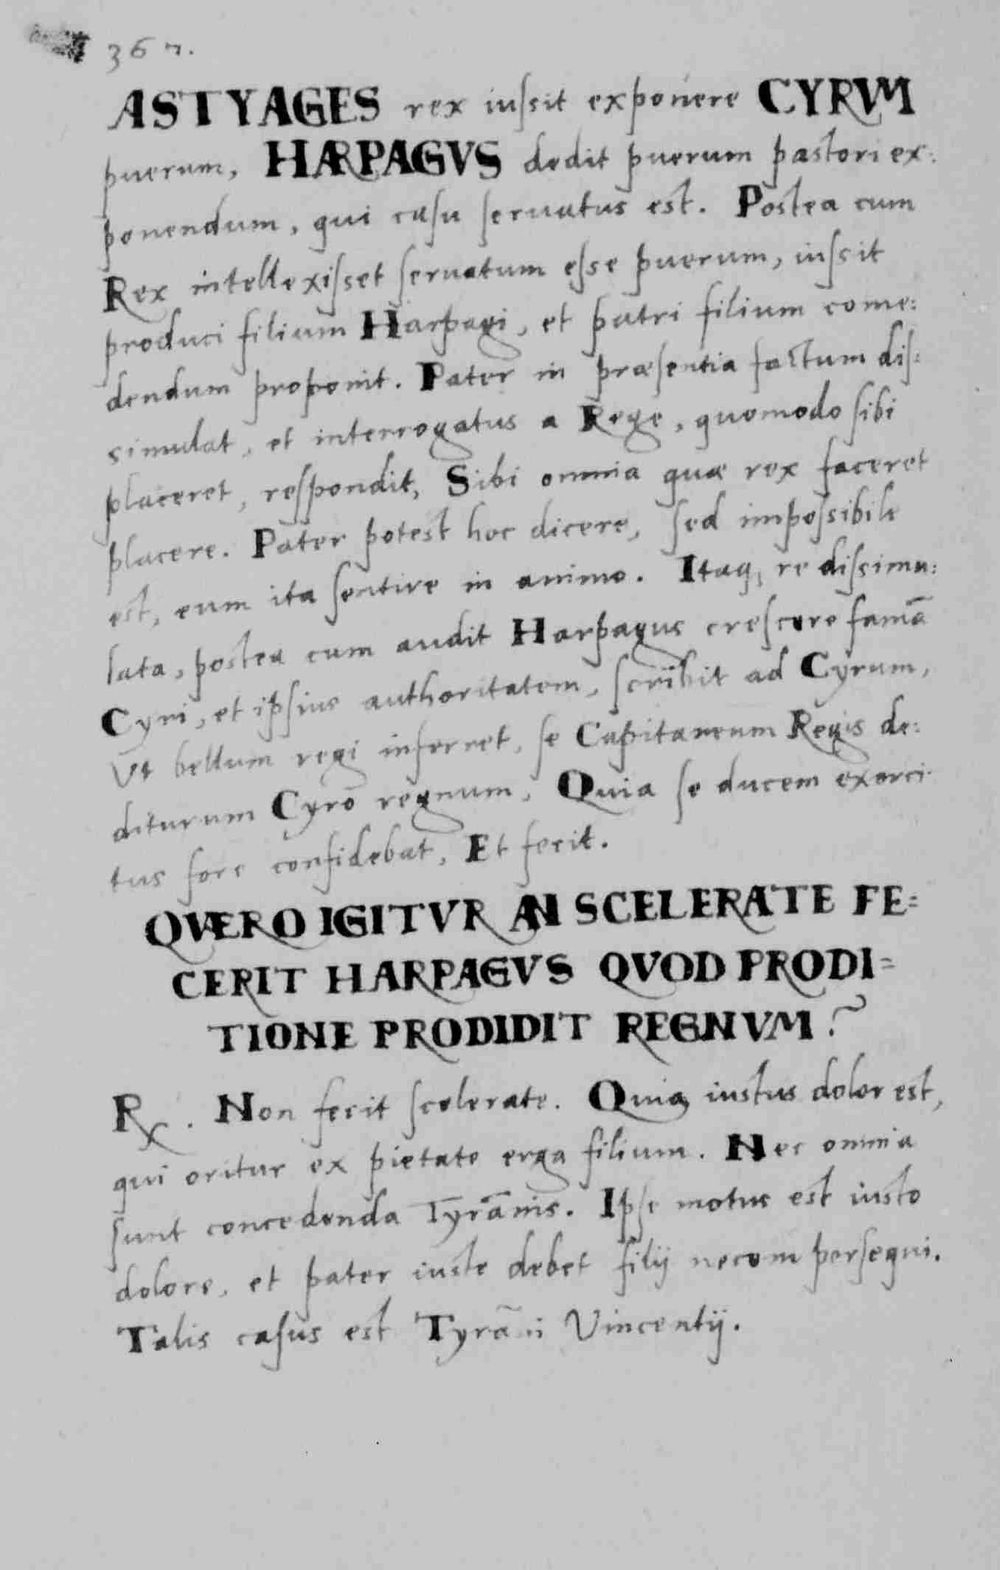 367.
ASTYAGES rex iussit exponere CYRVM
puerum, HARPAGVS dedit puerum pastori ex:
ponendum, qui casu seruatus est. Postea cum
Rex intellexisset seruatum esse puerum, iussit
produci filium Harpagi, et patri filium come:
dendum proponit. Pater in præsentia factum dis:
simulat, et interrogatus a Rege, quomodo sibi
placeret, respondit, Sibi omnia quæ rex faceret
placere. Pater potest hoc dicere, sed impossibile
est, eum ita sentire in animo. Itaq, re dissimu:
lata, postea cum audit Harpagus crescere famā
Cyri, et ipsius authoritatem, scribit ad Cyrum,
Vt bellum regi inferret, se Capitaneum Regis de:
diturum Cyro regnum, Quia se ducem exerci
tus fore confidebat, Et fecit.
QVÆRO IGITVR AN SCELERATE FE=
CERIT HARPAGVS QVOD PRODI=
TIONE PRODIDIT REGNVM?
R. Non fecit scelerate. Quia iustus dolor est,
qui oritur ex pietate erga filium. Nec omnia
sunt concedenda Tyrānis. Ipse motus est iusto
dolore, et pater iuste debet filij necem persequi.
Talis casus est Tyrāni Vincentij.